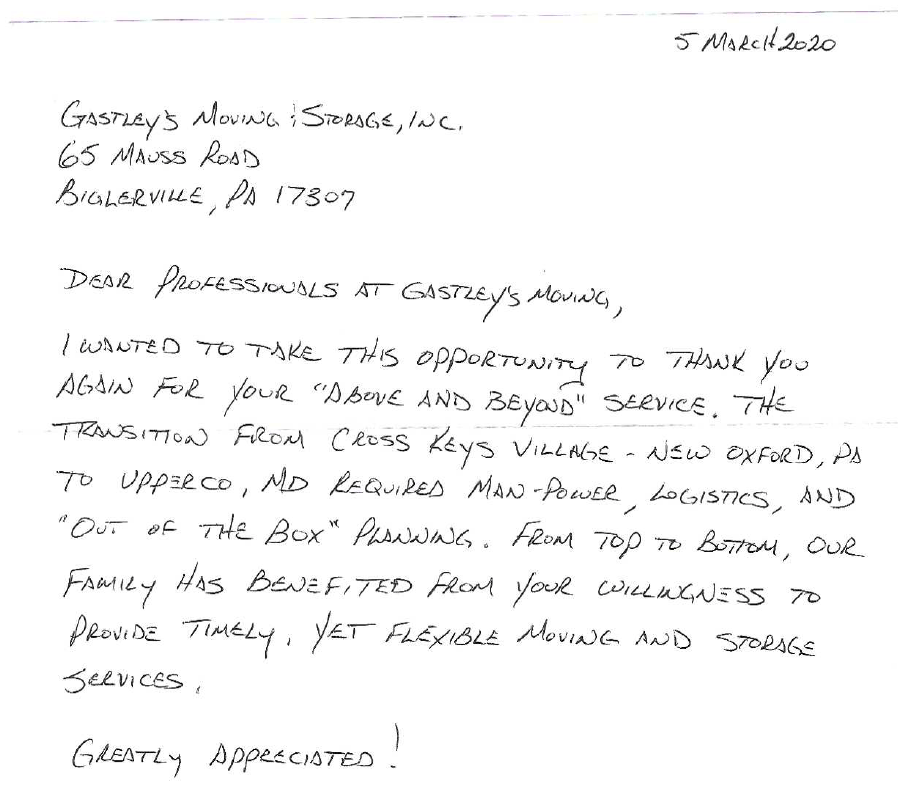 5 MARCH 2020
GASTLEY'S MOVING & STORAGE, INC.
65 MAUSS ROAD
BIGLERVILLE, PA 17307
DEAR PROFESSIONALS AT GASTLEY'S MOVING,
I WANTED TO TAKE THIS OPPORTUNITY TO THANK YOU
AGAIN FOR YOUR "ABOVE AND BEYOND" SERVICE. THE
TRANSITION FROM CROSS KEYS VILLAGE - NEW OXFORD, PA
TO UPPERCO, MD REQUIRED MAN-POWER, LOGISTICS, AND
"OUT OF THE BOX" PLANNING. FROM TOP TO BOTTOM, OUR
FAMILY HAS BENEFITED FROM YOUR WILLINGNESS TO
PROVIDE TIMELY, YET FLEXIBLE MOVING AND STORAGE
SERVICES.
GREATLY APPRECIATED!